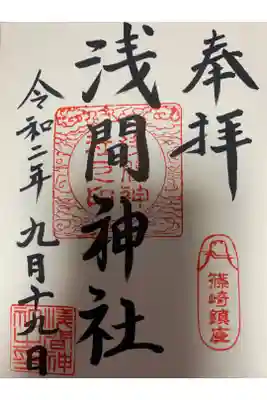 奉拝
篠崎鎮座
浅間神社
令和二年 九月十九日